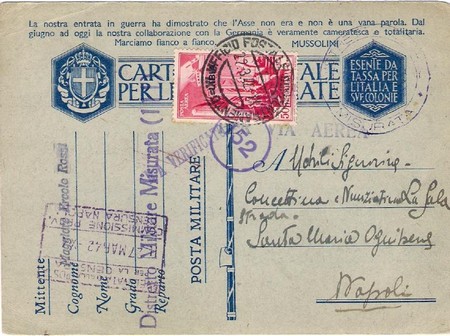 La nostra entrata in guerra ha dimostrato che l'Asse non era e non è una vana parola. Dal
giugno ad oggi la nostra collaborazione con la Germania è veramente cameratesca e totalitaria.
Marciamo fianco a fianco. MUSSOLINI
CARTOLINA POSTALE
PER LE FORZE ARMATE
ESENTE DA
TASSA PER
L'ITALIA E
SUE COLONIE
UFFICIO POST
MISURATA
50
VERIFICATO
52
VIA AEREA
POSTA MILITARE
Alle Nobili Signorine
Concettina e Nunziatina La Sala
Strada
Santa Maria
Napoli
Mittente:
Cognome
Nome
Grado
Reparto
Maggiore Ercole Rossi
Distretto Militare Misurata
COMMISSIONE PROV.
CENSURA
7 MAR. 42